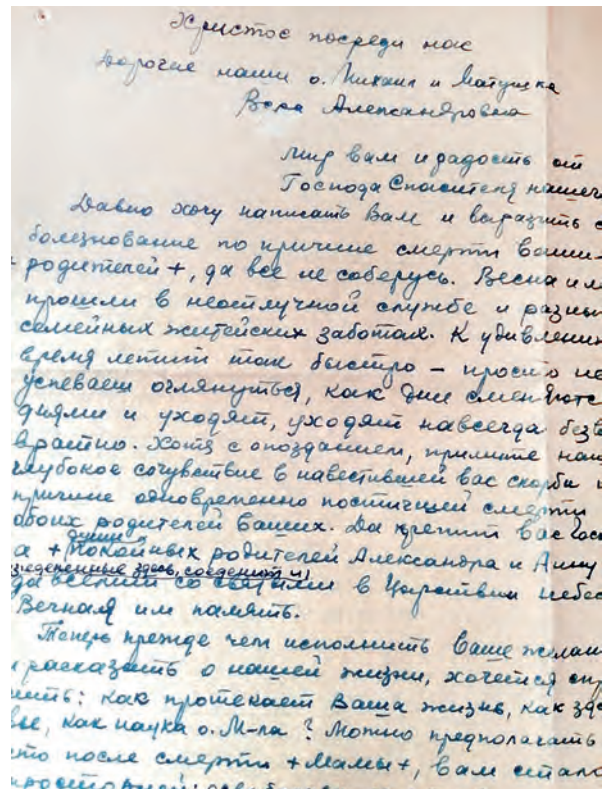 Христос посреди нас
Дорогие наши о. Михаил и Матушка
Вера Александровна
мир вам и радость от
Господа Спасителя нашего
Давно хочу написать Вам и выразить с
болезнование по причине смерти ваши
родителей +, да все не соберусь. Весна и л
прошли в неотлучной службе и разны
семейных житейских заботах. К удивлени
время летит так быстро – просто не
успеваеш оглянуться, как дни сменяютс
днями и уходят, уходят навсегда безв
вратно. Хотя с опозданием, примите наш
глубокое сочувствие в навестившей вас скорби
причине одновременно постигщей смерти
обоих родителей ваших. Да крепит вас Гос
души
а + покойных родителей Александра и Анну
здесь, соеденит и
да вселит со святыми в Царствии небес
Вечная им память.
Теперь прежде чем исполнить Ваше желан
и расказать о нашей жизни, хочется спр
сить: как протекает Ваша жизнь, как здо
вье, как наука о. М-ла? Можно предполагать
что после смерти + Мамы +, вам стало